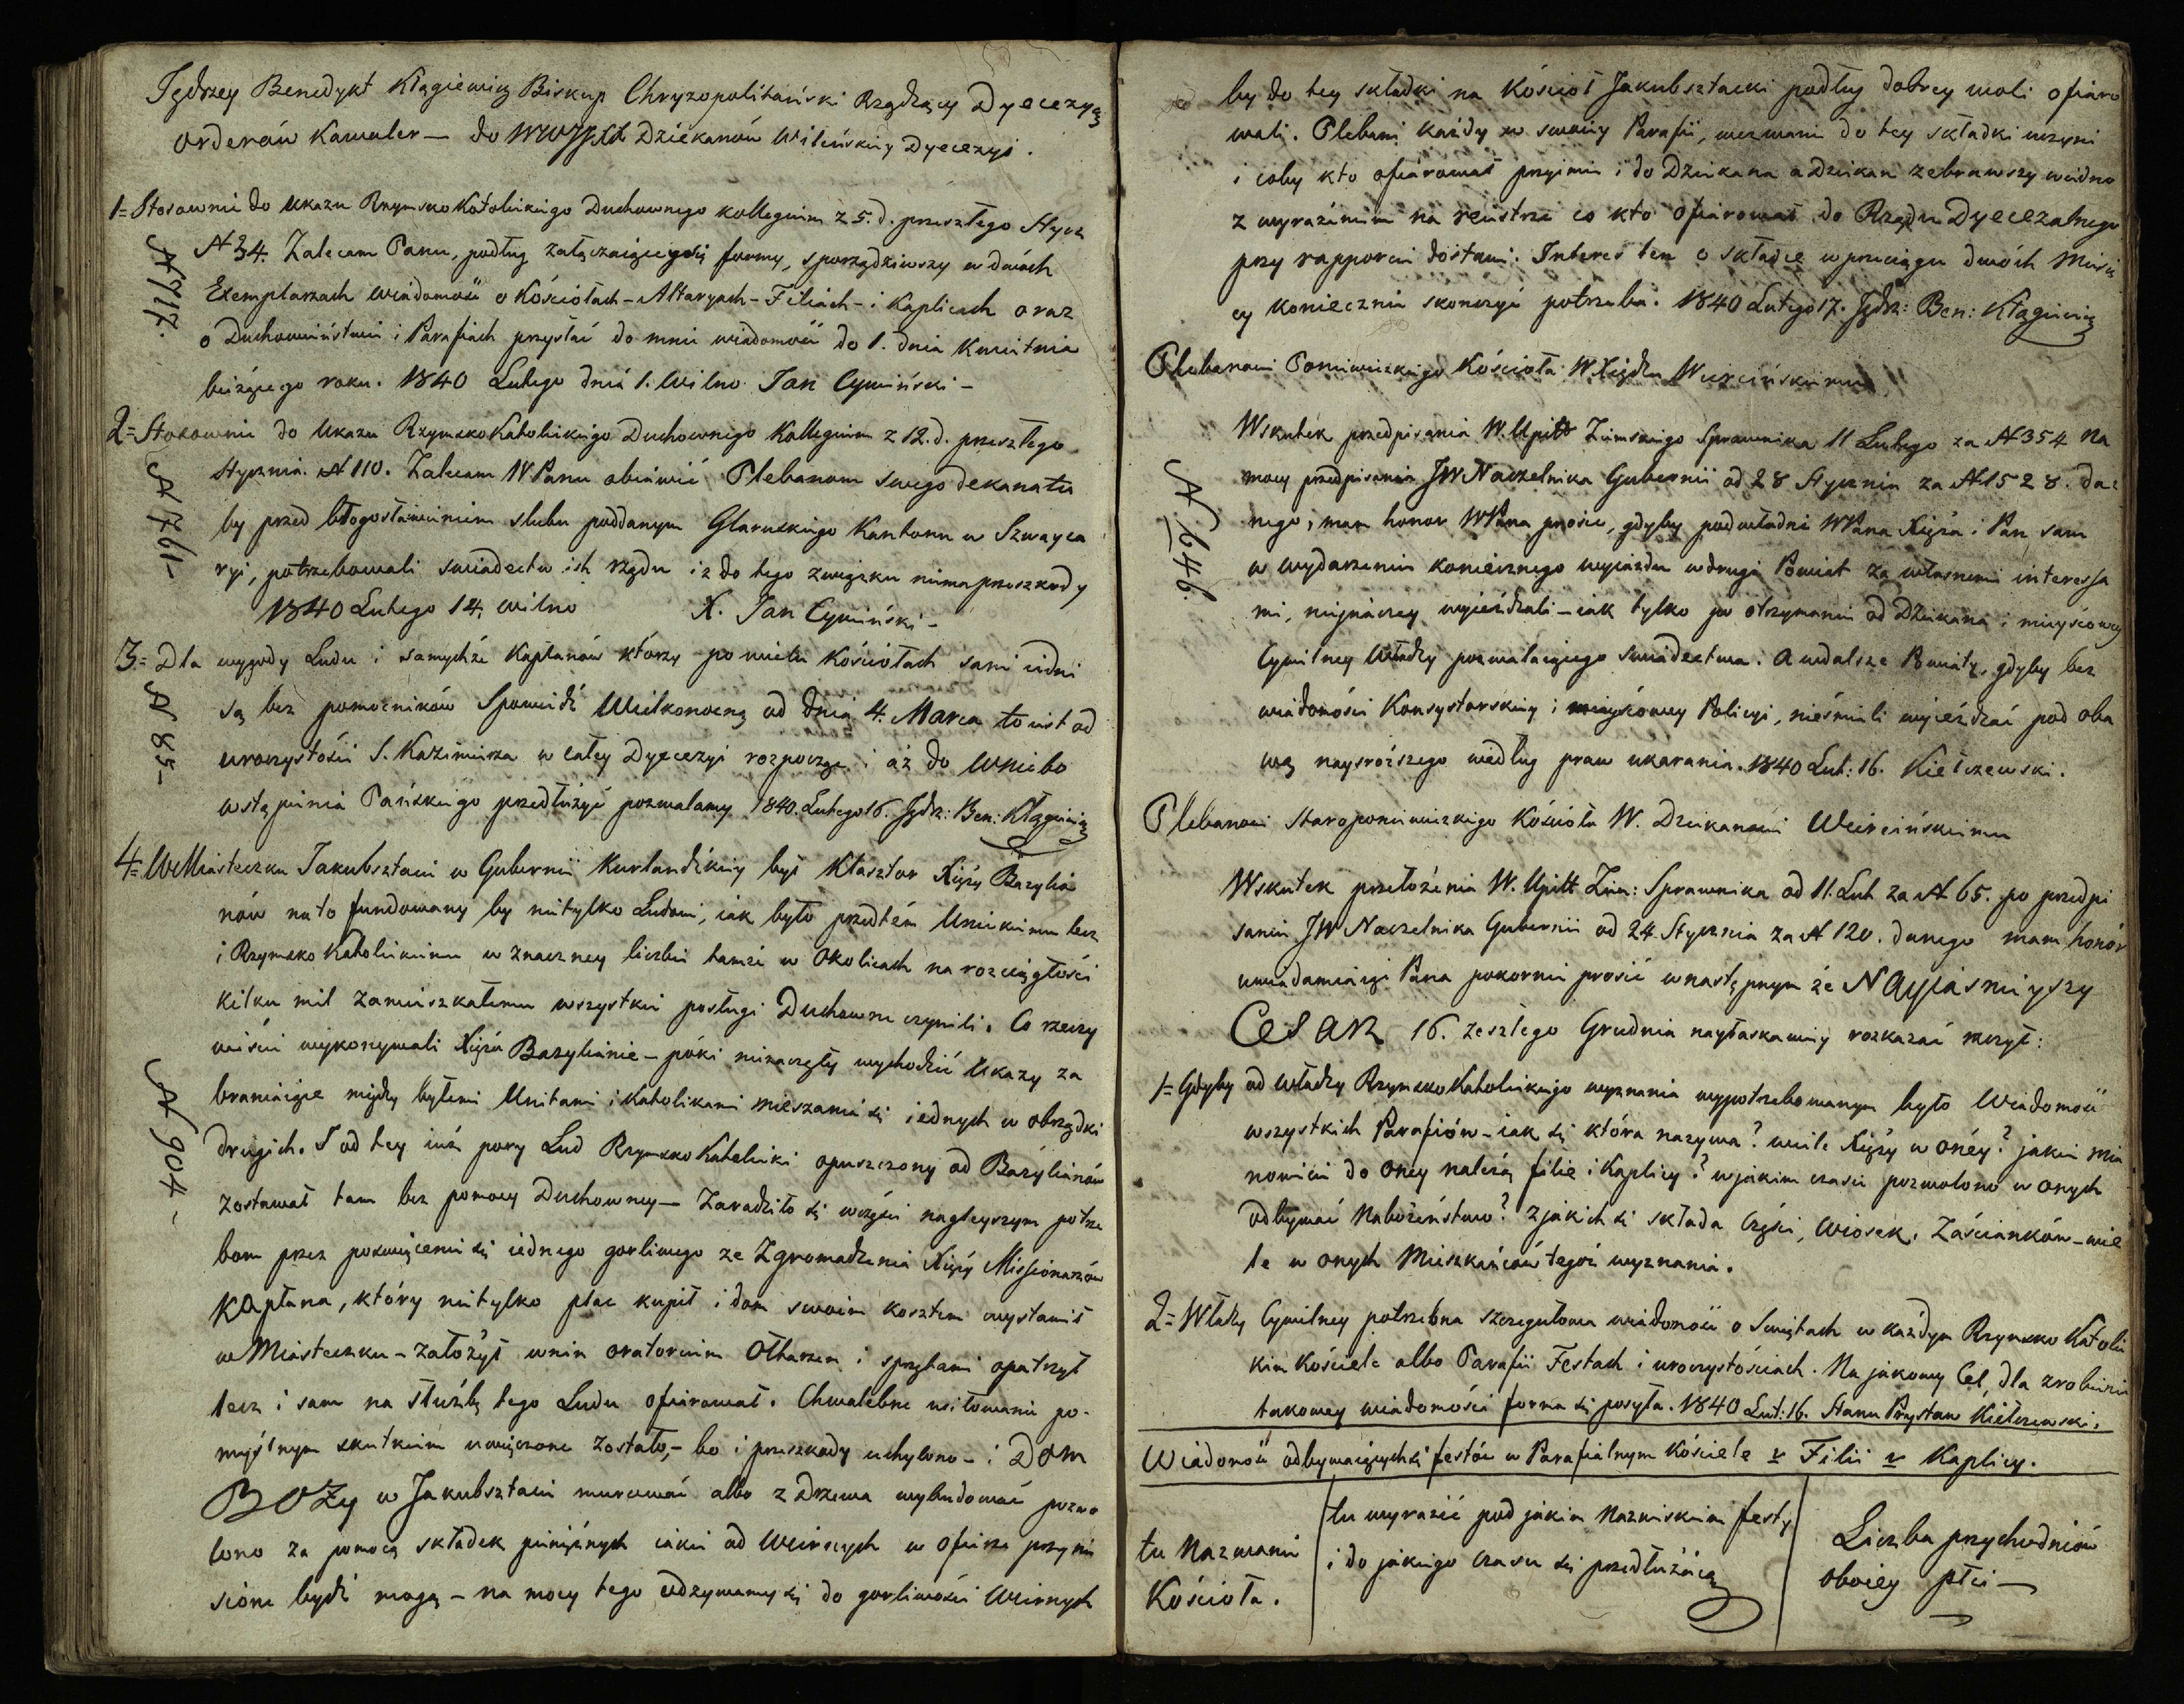 Jędrzey Benedykt Kłągiewicz Biskup Chryzopolitański Rządzący Dyecezyą
Orderów Kawaler — do WWJXX Dziekanów Wileńskiey Dyecezyi.
1= Stosownie do Ukazu Rzymsko Katolickiego Duchownego kollegium z 5. d. przeszłego Stycz
N 34. Zalecam Panu, podług załączaiącey się formy, sporządziwszy w dwóch
N 717.
Exemplarzach wiadomość o Kościołach - Altaryach - Filiach - i Kaplicach oraz
o Duchowieństwie i Parafiach przysłać do mnie wiadomość do 1. dnia Kwietnia
bieżącego roku. 1840 Lutego dnia 1. Wilno Jan Cywiński —
2= Stosownie do Ukazu Rzymsko Katolickiego Duchownego Kollegium z 12. d. przeszłego
Stycznia N 110. Zalecam WPanu obiawić Plebanom swego dekanatu
N 761—
by przed błogosławieniem slubu poddanym Glaruskiego Kantonu w Szwayca
ryi, potrzebowali swiadectw ich rządu iż do tego związku niema przeszkody
1840 Lutego 14. Wilno X. Jan Cywiński —
3= Dla wygody Ludu i samychże Kapłanów którzy po wielu Kościołach sami iedni
N 85—
są bez pomocników Spowiedź Wielkonocną od dnia 4. Marca to iest od
uroczystości S. Kazimierza w całey Dyecezyi rozpocząć i aż do Wniebo
wstąpienia Pańskiego przedłużyć pozwalamy 1840. Lutego 16. Jędrz: Ben: Kłągiewicz
4= W Miasteczku Jakubsztacie w Gubernii Kurlandzkiey był Klasztor Xięży Bazylia
nów na to fundowany by nietylko Ludowi, iak było przedtém Unickiemu lecz
i Rzymsko Katolickiemu w znaczney liczbie tamże w okolicach na rozciągłości
kilku mil zamieszkałemu wszystkie posługi Duchowne czynili. Co rzeczy
wiście wykonywali Xięża Bazylianie — póki niezaczęły wychodzić Ukazy za
N 904—
braniaiące między byłemi Unitami i Katolikami mieszania się iednych w obrządki
drugich. I od tey iuż pory Lud Rzymsko Katolicki opuszczony od Bazylianów
zostawał tam bez pomocy Duchowney — Zaradziło się wczęści nagleyszym potrze
bom przez poświęcenie się iednego gorliwego ze Zgromadzenia Xięży Missionarzów
Kapłana, który nietylko plac kupił i dom swoim kosztem wystawił
w Miasteczku — założył w nim oratorium Ołtarzem i sprzętami opatrzył
lecz i sam na służbę tego Ludu ofiarował. Chwalebne usiłowanie po-
myślnym skutkiem uwięczone zostało, — bo i przeszkody uchylono — i Dom
BOży w Jakubsztacie murować albo z drzewa wybudować pozwo
lono za pomocą składek pieniężnych iakie od Wiernych w ofierze przynie
sione bydź mogą — na mocy tego odzywamy się do gorliwości Wiernych
by do tey składki na Kościoł Jakubsztacki podług dobrey woli ofiaro
wali. Plebani każdy w swoiey Parafii, wezwanie do tey składki uczyni
i coby kto ofiarował przyimie i do Dziekana a Dziekan zebrawszy wiedno
z wyrażeniem na reiestrze co kto ofiarował do Rządu Dyecezalnego
przy rapporcie dostawi. Interes ten o składce w przeciągu dwóch Miesię
cy koniecznie skonczyć potrzeba. 1840 Lutego 17. Jędrz: Ben: Kłągiewicz
Plebanowi Poniewieskiego Kościoła W. Xiędzu Wiercińskiemu
Wskutek przedpisania W. Upitt Ziemskiego Sprawnika 11 Lutego za N 354 na
mocy przedpisania JW Naczelnika Gubernii od 28 Stycznia za N 1528. da=
N 646
nego, mam honor WPana prosić, gdyby podwładni WPana Xięża i Pan sam
w wydarzeniu koniecznego wyiazdu w drugi Powiat za własnemi interessa
mi, nieinaczey wyieżdżali — iak tylko po otrzymaniu od Dziekana i mieyscowey
Cywilney Władzy pozwalaiącego swiadectwa. A w dalsze Powiaty, gdyby bez
wiadomości Konsystorskiey i mieyscowey Policyi, nieśmieli wyieżdżać pod oba
wą naysroższego według praw ukarania. 1840 Lut: 16. Kiełczewski.
Plebanowi Staroponiewieskiego Kościoła W. Dziekanowi Wiercińskiemu
Wskutek przełożenia W. Upitt Ziem: Sprawnika od 11. Lut za N 65. po przedpi
saniu JW Naczelnika Gubernii od 24. Stycznia za N 120. danego mam honór
uwiadamiaiąc Pana pokornie prosić w następnym że NAyiasnieyszy
CesARz 16. zeszłego Grudnia nayłaskawiey rozkazać raczył:
1= Gdyby od władzy Rzymsko Katolickiego wyznania wypotrzebowanym było Wiadomość
wszystkich Parafiów — iak się która nazywa? wiele Xięży w onéy? jakie mia
nowicie do oney należą filie i Kaplicy? w jakim czasie pozwolono w onych
odbywać Nabożeństwo? z jakich się składa Części, Wiosek, Zaścianków — wie
le w onych Mieszkańców tegoż wyznania.
2= Władzy Cywilney potrzebna szczegułowa wiadomość o Swiętach w każdym Rzymsko Katolic
kim Kościele albo Parafii Festach i uroczystościach. Na jakowy Cel, dla zrobienia
takowey wiadomości forma się posyła. 1840 Lut: 16. Stanu Prystaw Kiełczewski.
Wiadomość odbywaiących się festów w Parafialnym Kościele v Filii v Kaplicy.
tu Nazwanie
Kościoła.
tu wyrazić pod jakim Nazwiskiem festy
i do jakiego czasu się przedłużaią
Liczba przychodniów
oboiey płci —